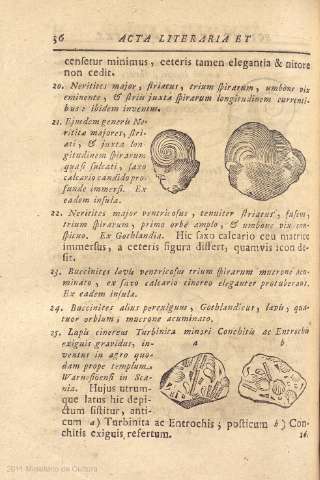 56 ACTA LITERARIA ET
censetur minimus, ceteris tamen elegantia & nitore
non cedit.
20. Neritites major, striatus, trium spirarum, umbone vix
eminente, & striis juxta spirarum longitudinem currenti-
bus: ibidem inventus.
21. Ejusdem generis Ne-
rititæ majores, stri-
ati, & juxta lon-
gitudinem spirarum
quasi sulcati, saxo
calcario candido pro-
funde immersi. Ex
eadem insula.
22. Neritites major ventricosus, tenuiter striatus, fuscus,
trium spirarum, primo orbe amplo, & umbone vix con-
spicuo. Ex Gothlandia. Hic saxo calcario ceu matrice
immersus, a ceteris figura differt, quamvis icon de-
sit.
23. Buccinites lævis ventricosus trium spirarum mucrone acu-
minato, ex saxo calcario cinereo eleganter protuberans.
Ex eadem insula.
24. Buccinites alius perexiguus, Gothlandicus, lævis, qua-
tuor orbium, mucrone acuminato.
25. Lapis cinereus Turbinita minori Conchitis ac Entrocho
exiguis gravidus, in-
ventus in agro quo-
dam prope templum
Warnosiensi in Sca-
nia. Hujus utrum-
que latus hic depi-
ctum sistitur, anti-
cum a) Turbinita ac Entrochis; posticum b) Con-
chitis exiguis refertum.
a b
26.
2011 Ministerio de Cultura